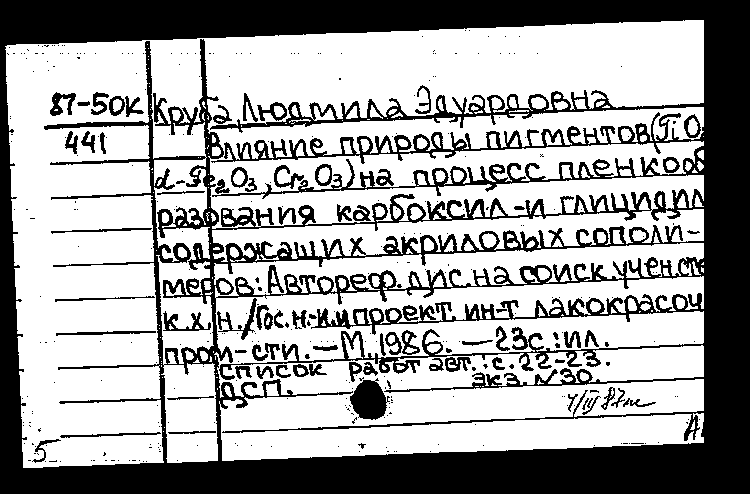 87-50К Круба, Людмила Эдуардовна
441 Влияние природы пигментов (TiO₂
α-Fe₂O₃, Cr₂O₃) на процесс пленкооб
разования карбоксил- и глицидил
содержащих акриловых сополи-
меров: Автореф. дис. на соиск. учен. сте
к. х. н. /Гос. н.-и. и проект. ин-т лакокрасоч
пром-сти. — М., 1986. — 23с.: ил.
Список работ авт.: с. 22-23.
ДСП. экз. N 30.
5